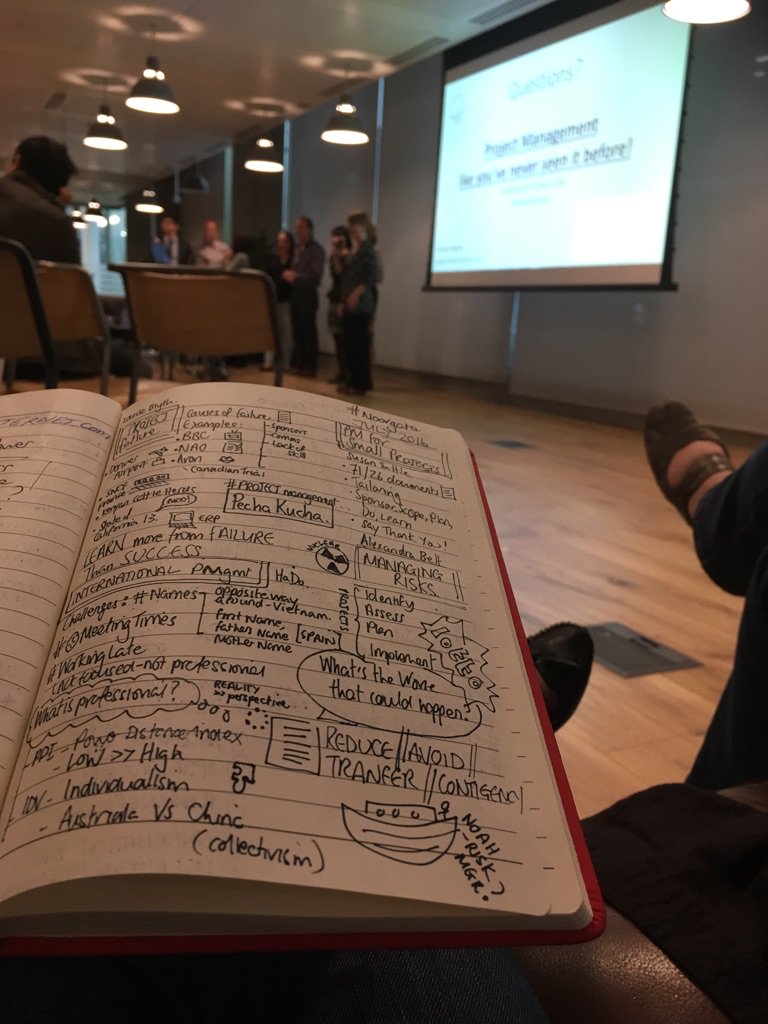 Questions?
Project Management
like you've never seen it before!
ERNET.Com
Failure
Causes of failure
Examples:
• BBC
• NAO
• Avon
Canadian Trial
Sponsors
Comms
Lack of
Skill
• Denver
Airport
• SNCF
France
• Kenyan Cattle Herds
Moo!
• State of
California 13.
ERP
#PROJECT management
Pecha Kucha
LEARN more from FAILURE
than SUCCESS
INTERNATIONAL PMgmt
HaDo.
Challenges: # Names
opposite way
around - Vietnam.
First Name
Father Name
Mother Name
SPAIN
#@Meeting Times
#Working Late
(not focused - not professional
What is professional?
REALITY
>> perspective
PDI - Power Distance Index
- Low >> High
IDV - Individualism
- Australia Vs China
(collectivism)
#Moorgate
JULY 2016
PM for
Small Projects
Susan Tuttle
• 71/26 documents
• Tailoring
• Sponsor, Scope, Plan,
Do, Learn
• Say Thank You!
Alexandra Bett
NUCLEAR
MANAGING
RISKS
PROJECTS
Identify
Assess
Plan
Implement
What's the Worse
that could happen?
REDUCE || AVOID
TRANFER || CONTIGENCY
NOAH
- RISK
MGR?